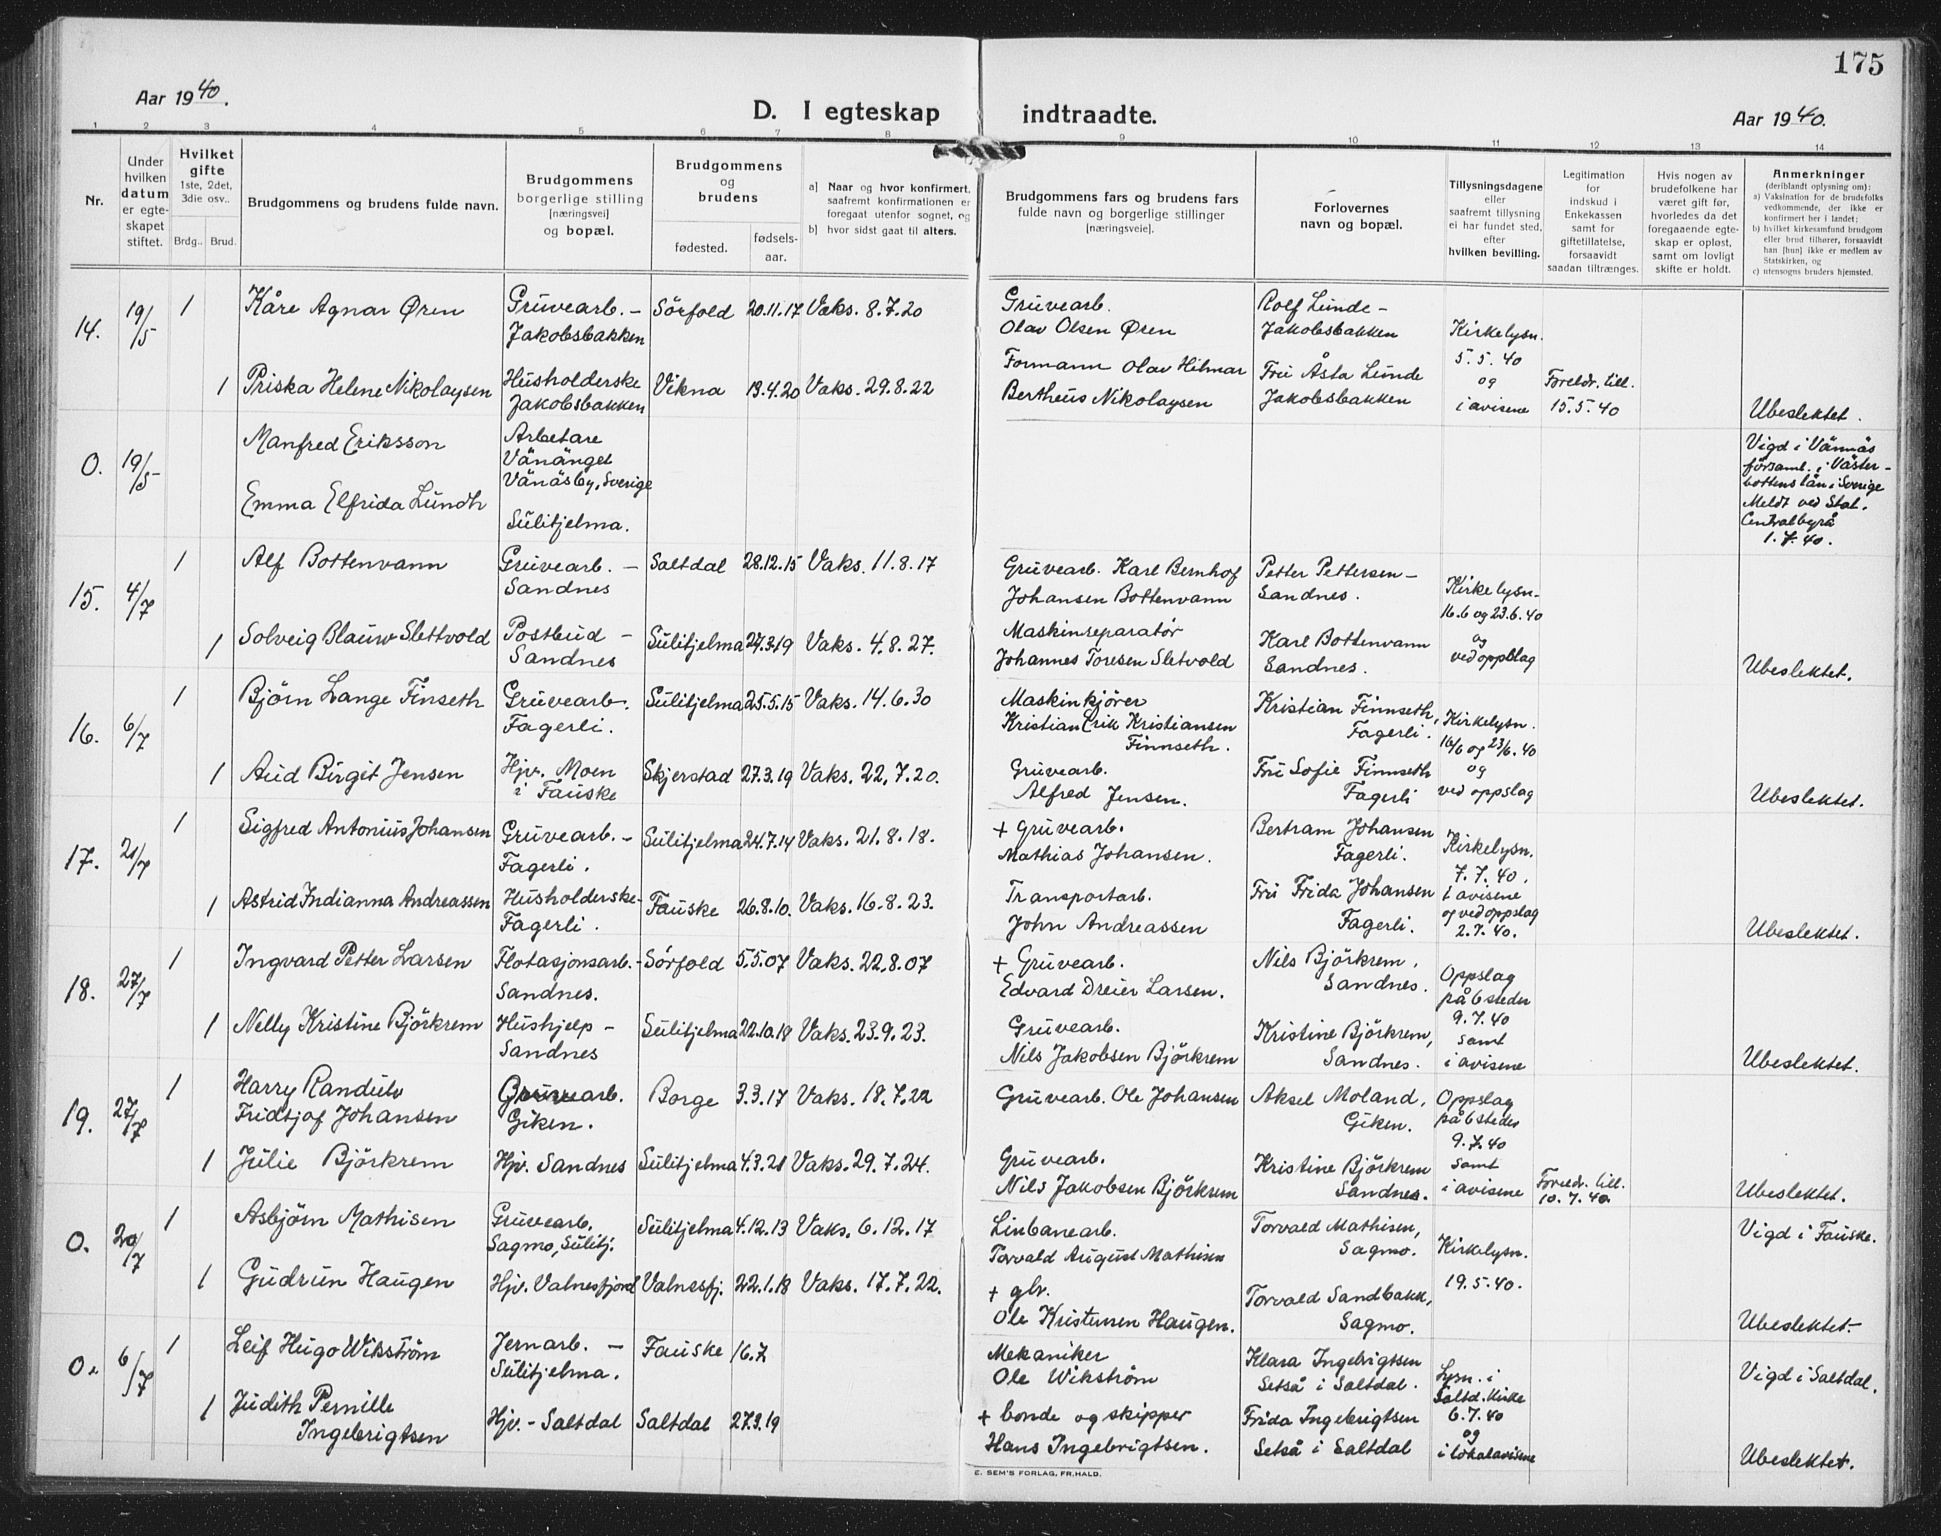 175
Aar 1940.
D. I egteskap indtraadte.
Aar 1940.
1 2 3 4 5 6 7 8 9 10 11 12 13 14
Nr.
Under hvilken datum er egteskapet stiftet.
Hvilket gifte 1ste, 2det, 3die osv..
Brdg.. Brud.
Brudgommens og brudens fulde navn.
Brudgommens borgerlige stilling [næringsvei] og bopæl.
Brudgommens og brudens
fødested.
fødselsaar.
a] Naar og hvor konfirmert, saafremt konfirmationen er foregaat utenfor sognet, og
b] hvor sidst gaat til alters.
Brudgommens fars og brudens fars fulde navn og borgerlige stillinger [næringsveie].
Forlovernes navn og bopæl.
Tillysningsdagene eller saafremt tillysning ei har fundet sted, efter hvilken bevilling.
Legitimation for indskud i Enkekassen samt for giftetillatelse, forsaavidt saadan tiltrænges.
Hvis nogen av brudefolkene har været gift før, hvorledes da det foregaaende egteskap er opløst, samt om lovligt skifte er holdt.
Anmerkninger (deriblandt oplysning om):
a) Vaksination for de brudefolks vedkommende, der ikke er konfirmert her i landet;
b) hvilket kirkesamfund brudgom eller brud tilhører, forsaavidt han [hun] ikke er medlem av Statskirken, og
c) utensogns bruders hjemsted.
14. 19/5 1 Kåre Agnar Øren Gruvearb. – Jakobsbakken Sörfold 20.11.17 Vaks. 8.7.20 Gruvearb. Olav Olsen Øren Rolf Lunde – Jakobsbakken Kirkelysn. 5.5.40 og i avisene
1 Priska Helene Nikolaysen Husholderske Jakobsbakken Vikna 13.4.20 Vaks. 29.8.22 Formann Olav Hilmar Bertheus Nikolaysen Fru Åsta Lunde Jakobsbakken Foreldr. till. 15.5.40 Ubeslektet.
0. 19/5 Manfred Eriksson Arbetare Vänänget Vänäsby, Sverige
Emma Elfrida Lundh Sulitjelma.
Vigd i Vännäs församl. i Västerbottens län i Sverige Meldt ved Stat. Centralbyrå 1.7.40.
15. 4/7 1 Alf Bottenvann Gruvearb. – Sandnes Saltdal 28.12.15 Vaks. 11.8.17 Gruvearb. Karl Bernhof Johansen Bottenvann Petter Pettersen – Sandnes. Kirkelysn. 16.6 og 23.6.40 og ved oppslag
1 Solveig Blauw Slettvold Postbud – Sandnes Sulitjelma 27.3.19 Vaks. 4.8.27. Maskinseparatør Johannes Toresen Sletvold Karl Bottenvann Sandnes. Ubeslektet.
16. 6/7 1 Bjørn Lange Finseth Gruvearb. Fagerli. Sulitjelma 25.5.15 Vaks. 14.6.30 Maskinkjörer Kristian Erik Kristiansen Finnseth. Kristian Finnseth, Fagerli. Kirkelysn. 16/6 og 23/6.40 og ved oppslag
1 Aud Birgit Jensen Hjv. Moen i Fauske Skjerstad 27.3.19 Vaks. 22.7.20. Gruvearb. Alfred Jensen. Fru Sofie Finnseth Fagerli Ubeslektet.
17. 21/7 1 Sigfred Antonius Johansen Gruvearb. – Fagerli. Sulitjelma 24.7.14 Vaks. 21.8.18. + gruvearb. Mathias Johansen. Bertram Johansen Fagerli. Kirkelysn. 7.7.40. i avisene og ved oppslag 2.7.40.
1 Astrid Indianna Andreassen Husholderske – Fagerli. Fauske 26.8.10. Vaks. 16.8.23. Transportarb. John Andreassen Fru Frida Johansen Fagerli. Ubeslektet.
18. 27/7 1 Ingvard Petter Larsen Flotasjonsarb. – Sandnes. Sörfold 5.5.07 Vaks. 22.8.07 + Gruvearb. Edvard Dreier Larsen. Nils Björkrem, Sandnes. Oppslag på 6 steder 9.7.40 samt i avisene
1 Nelly Kristine Björkrem Hushjelp – Sandnes Sulitjelma 22.10.18 Vaks. 23.9.23. Gruvearb. Nils Jakobsen Björkrem Kristine Björkrem, Sandnes. Ubeslektet.
19. 27/7 1 Harry Randulv Fridtjof Johansen Gruvearb. Giken. Borge 3.3.17 Vaks. 18.7.22 Gruvearb. Ole Johansen Aksel Moland, Giken. Oppslag på 6 steder 9.7.40 samt i avisene
1 Julie Björkrem Hjv. Sandnes Sulitjelma 4.3.21 Vaks. 29.7.24. Gruvearb. Nils Jakobsen Björkrem Kristine Björkrem Sandnes. Foreldr. till. 10.7.40. Ubeslektet.
0. 20/7 1 Asbjørn Mathisen Gruvearb. Sagmo, Sulitj. Sulitjelma 4.12.13 Vaks. 6.12.17 Linbanearb. Torvald August Mathisen Torvald Mathisen, Sagmo. Kirkelysn. 19.5.40. Vigd i Fauske.
1 Gudrun Haugen Hjv. Valnesfjord Valnesfj. 22.1.18 Vaks. 17.7.22. + gbr. Ole Kristensen Haugen. Torvald Sandbakk, Sagmo. Ubeslektet.
0. 6/7 1 Leif Hugo Wikström Jernarb. – Sulitjelma. Fauske 16.7 Mekaniker Ole Wikström Klara Ingebrigtsen Setså i Saltdal. Lysn. i Saltd. kirke 6.7.40 og i lokalavisene Vigd i Saltdal.
1 Judith Pernille Ingebrigtsen Hjv. – Saltdal Saltdal 27.3.19 + bonde og skipper Hans Ingebrigtsen. Frida Ingebrigtsen Setså i Saltdal Ubeslektet.
E. SEM'S FORLAG, FR.HALD.